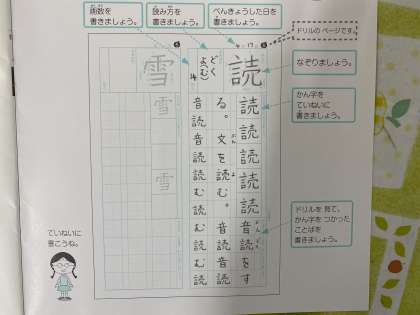 画数を
書きましょう。
読み方を
書きましょう。
べんきょうした日を
書きましょう。
ドリルの ページです。
なぞりましょう。
かん字を
ていねいに
書きましょう。
ドリルを 見て、
かん字を つかった
ことばを
書きましょう。
4 17
読
どく
よ(む)
14
読読読読読音読をす
る。文を読む。音読む読
雪
雪
雪
ていねいに
書こうね。